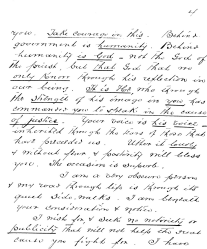 4
you. Take courage in this. Behind
government is humanity. Behind
humanity is God – not the God of
the priest, but that God that we
only know through his reflection in
our being. It is He who through
the strength of his image in you has
commanded you to speak in the cause
of justice. Your voice is his voice
inherited through the lives of those that
have preceded us. Utter it loudly
& without fear & posterity will bless
you. The occasion is superb.
I am a very obscure person
& my road through life is through its
quiet by marks. I am beneath
your consideration & notice.
I wish for & seek no notoriety or
publicity that will not help the great
cause you fight for. I have